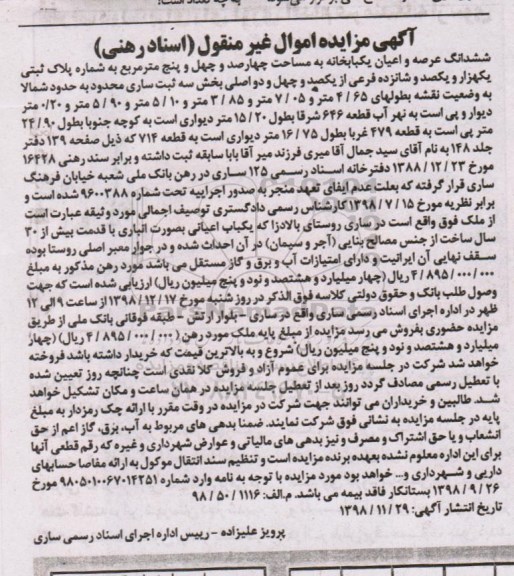 آگهی مزایده اموال غیر منقول (اسناد رهنی)
ششدانگ عرصه و اعیان یکبابخانه به مساحت چهارصد و چهل و پنج مترمربع به شماره پلاک ثبتی
یکهزار و یکصد و شانزده فرعی از یکصد و چهل و دو اصلی بخش سه ثبت ساری محدود به حدود شمالا
به وضعیت نقشه بطولهای ۶۵ / ۴ متر و ۰۵ / ۷ متر و ۸۵ / ۳ متر و ۱۰ / ۵ متر و ۹۰ / ۵ متر و ۲۰/۰ متر
دیوار و پی است به نهر آب قطعه ۶۴۶ شرقا بطول ۲۰ / ۱۵ متر دیواری است به کوچه جنوبا بطول ۹۰ / ۲۴
متر پی است به قطعه ۴۷۹ غربا بطول ۷۵ / ۱۶ متر دیواری است به قطعه ۷۱۴ که ذیل صفحه ۱۳۹ دفتر
جلد ۱۴۸ به نام آقای سید جمال آقا میری فرزند میر آقا بابا سابقه ثبت داشته و برابر سند رهنی ۱۶۴۲۸
مورخ ۲۳ / ۱۲ / ۱۳۸۸ دفترخانه اسناد رسمی ۱۲۵ ساری در رهن بانک ملی شعبه خیابان فرهنگ
ساری قرار گرفته که بعلت عدم ایفای تعهد منجر به صدور اجراییه تحت شماره ۹۶۰۰۳۸۸ شده است و
برابر نظریه مورخ ۱۵ / ۷ / ۱۳۹۸ کارشناس رسمی دادگستری توصیف اجمالی مورد وثیقه عبارت است
از ملک فوق واقع است در ساری روستای بالادزا که یکباب اعیانی بصورت انباری با قدمت بیش از ۳۰
سال ساخت از جنس مصالح بنایی (آجر و سیمان) در آن احداث شده و در جوار معبر اصلی روستا بوده
سقف نهایی آن ایرانیت و دارای امتیازات آب و برق و گاز مستقل می باشد مورد رهن مذکور به مبلغ
۰۰۰ / ۰۰۰ / ۸۹۵ / ۴ ریال (چهار میلیارد و هشتصد و نود و پنج میلیون ریال) ارزیابی شده است که جهت
وصول طلب بانک و حقوق دولتی کلاسه فوق الذکر در روز شنبه مورخ ۱۷ / ۱۲ / ۱۳۹۸ از ساعت ۹ الی ۱۲
ظهر در اداره اجرای اسناد رسمی ساری واقع در ساری - بلوار ارتش - طبقه فوقانی بانک ملی از طریق
مزایده حضوری بفروش می رسد مزایده از مبلغ پایه ملک مورد رهن (۰۰۰ / ۰۰۰ / ۸۹۵ / ۴ ریال) (چهار
میلیارد و هشتصد و نود و پنج میلیون ریال) شروع و به بالاترین قیمت که خریدار داشته باشد فروخته
خواهد شد شرکت در جلسه مزایده برای عموم آزاد و فروش کلا نقدی است چنانچه روز تعیین شده
با تعطیل رسمی مصادف گردد روز بعد از تعطیل جلسه مزایده در همان ساعت و مکان تشکیل خواهد
شد. طالبین و خریداران می توانند جهت شرکت در مزایده در وقت مقرر با ارائه چک رمزدار به مبلغ
پایه در جلسه مزایده به نشانی فوق شرکت نمایند. ضمنا بدهی های مربوط به آب، برق، گاز اعم از حق
انشعاب و یا حق اشتراک و مصرف و نیز بدهی های مالیاتی و عوارض شهرداری و غیره که رقم قطعی آنها
برای این اداره معلوم نشده بعهده برنده مزایده است و تنظیم سند انتقال موکول به ارائه مفاصا حسابهای
دارایی و شهرداری و... خواهد بود مورد مزایده با توجه به نامه وارد شماره ۹۸۰۵۰۱۰۶۷۰۱۴۲۵۱ مورخ
۲۶ / ۹ / ۱۳۹۸ بستانکار فاقد بیمه می باشد. م.الف: ۱۱۱۶ / ۵۰ / ۹۸
تاریخ انتشار آگهی: ۲۹ / ۱۱ / ۱۳۹۸
پرویز علیزاده - رییس اداره اجرای اسناد رسمی ساری